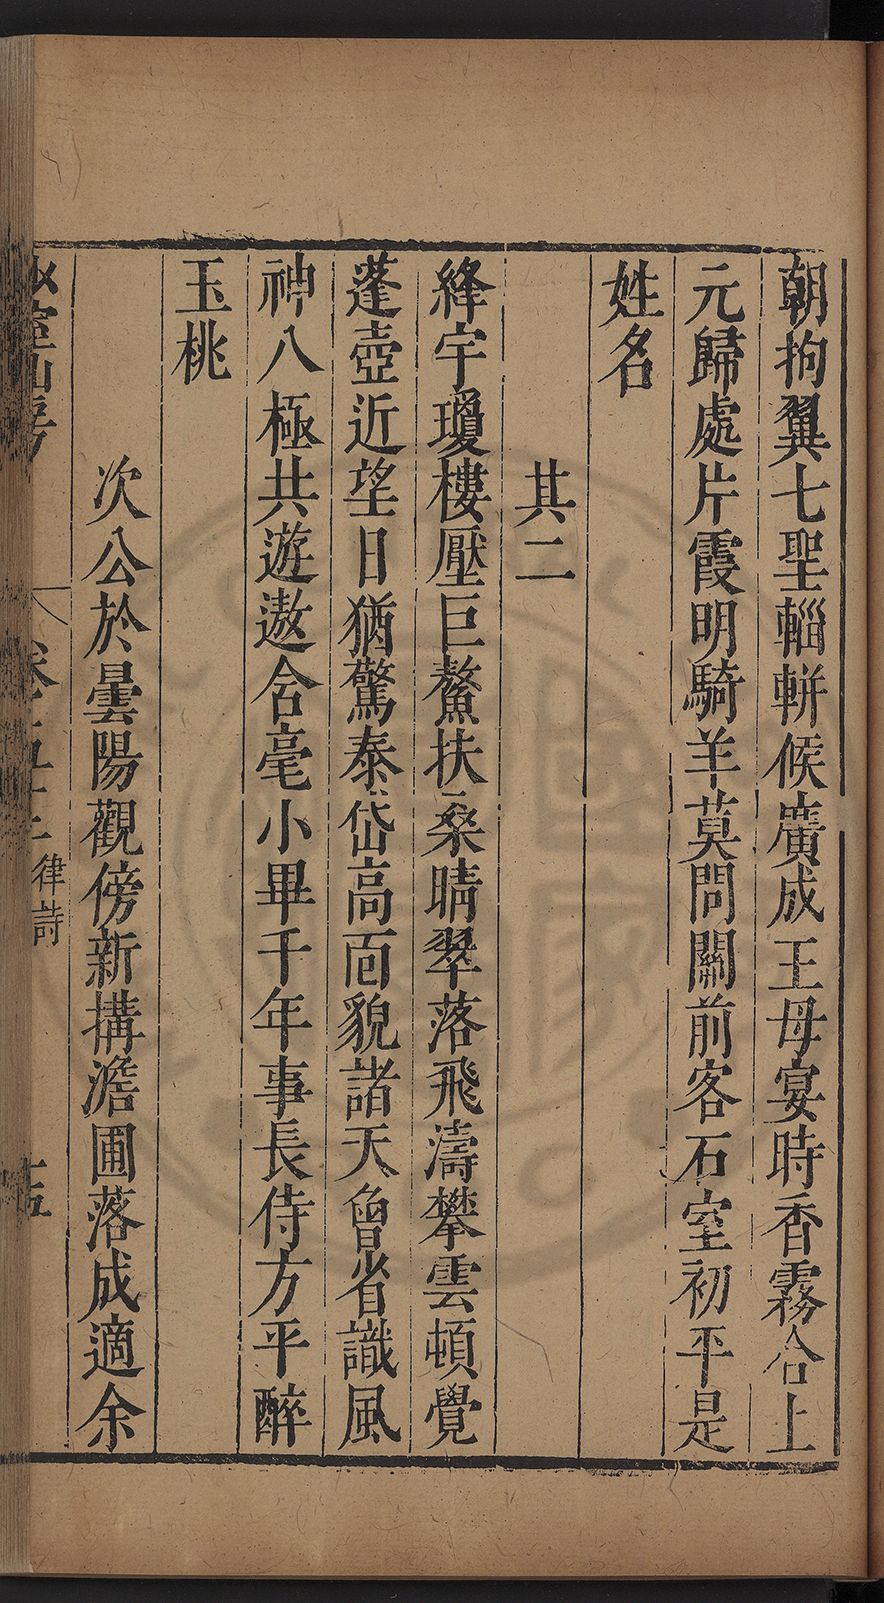 朝拘翼七聖輜軿候廣成王母宴時香霧合上
元歸處片霞明騎羊莫問關前客石室初平是
姓名
其二
絳宇瓊樓壓巨鰲扶桑晴翠落飛濤攀雲頓覺
蓬壺近望日猶驚泰岱高面貌諸天曾省識風
神八極共遊遨含毫小畢千年事長侍方平醉
玉桃
次公於曇陽觀傍新搆澹圃落成適余
律詩